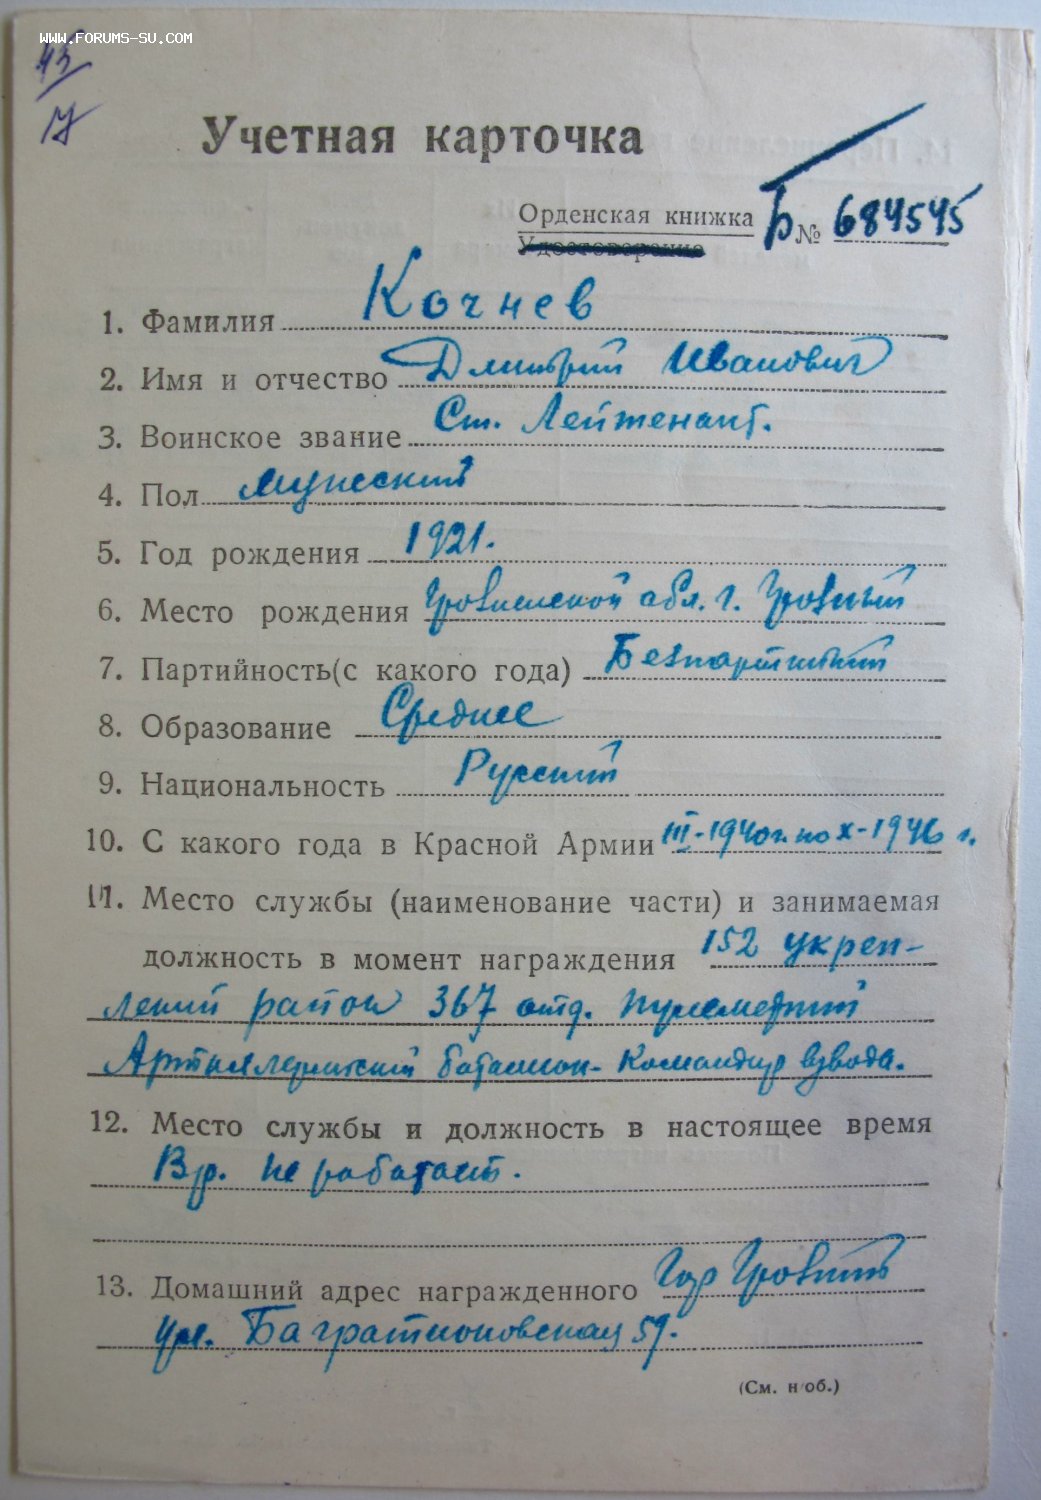 WWW.FORUMS-SU.COM
45
Учетная карточка
Орденская книжка Б № 684545
Удостоверение
1. Фамилия Кочнев
2. Имя и отчество Дмитрий Иванович
3. Воинское звание Ст. Лейтенант.
4. Пол мужской
5. Год рождения 1921.
6. Место рождения Грозненской обл. г. Грозный
7. Партийность(с какого года) Безпартийный
8. Образование Среднее
9. Национальность Русский
10. С какого года в Красной Армии III-1940г. по X-1946 г.
11. Место службы (наименование части) и занимаемая
должность в момент награждения 152 укреп-
лений район 367 отд. пулеметный
Артиллерийский баталион- Командир взвода.
12. Место службы и должность в настоящее время
Вр. не работает.
13. Домашний адрес награжденного Гор Грозный
ул. Багратионовская 59.
(См. н/об.)